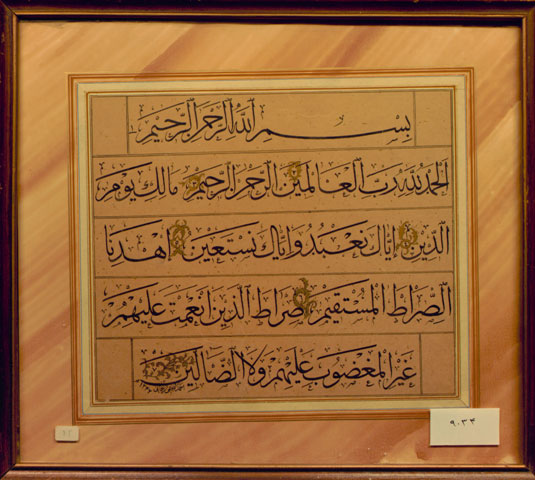 بسم الله الرحمن الرحيم
الحمد لله رب العالمين الرحمن الرحيم مالك يوم
الدين إياك نعبد وإياك نستعين اهدنا
الصراط المستقيم صراط الذين انعمت عليهم
غير المغضوب عليهم ولا الضالين
۹۰۳۴